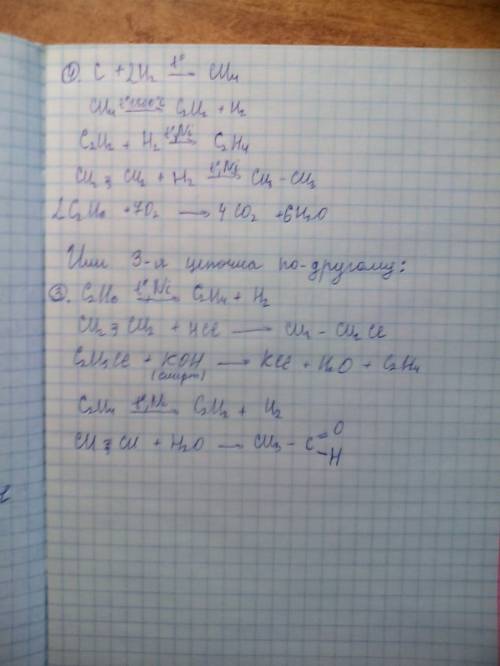 ④. C + 2H₂ —t°→ CH₄
CH₄ —t° 1500°C→ C₂H₂ + H₂
C₂H₂ + H₂ —t°, Ni→ C₂H₄
CH₂ = CH₂ + H₂ —t°, Ni→ CH₃ – CH₃
2C₂H₆ + 7O₂ → 4CO₂ + 6H₂O
Или 3-я цепочка по-другому:
③. C₂H₆ —t°, Ni→ C₂H₄ + H₂
CH₂ = CH₂ + HCl → CH₃ – CH₂Cl
C₂H₅Cl + KOH (спирт) → KCl + H₂O + C₂H₄
C₂H₄ —t°, Ni→ C₂H₂ + H₂
CH ≡ CH + H₂O → CH₃ – C =O –H